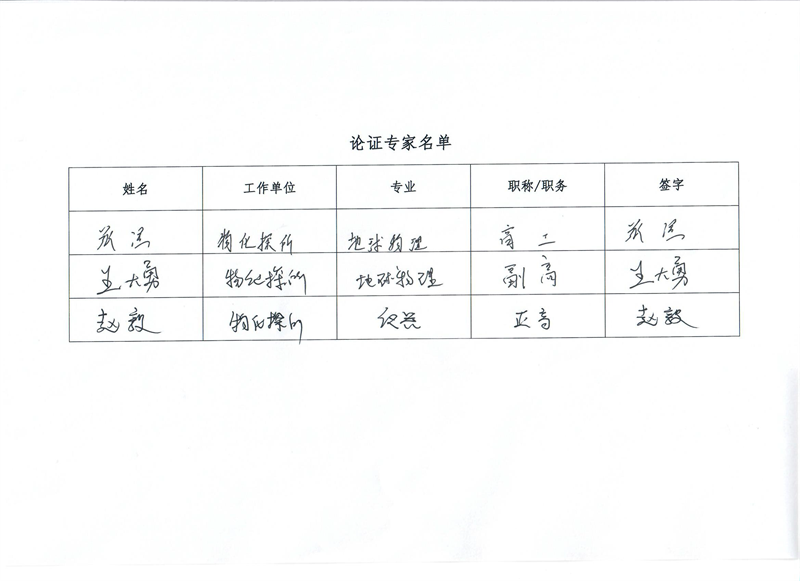 论证专家名单
姓名 工作单位 专业 职称/职务 签字
物化探所 地球物理 高工
王大勇 物化探所 地球物理 副高 王大勇
赵毅 物化探所 仪器 正高 赵毅